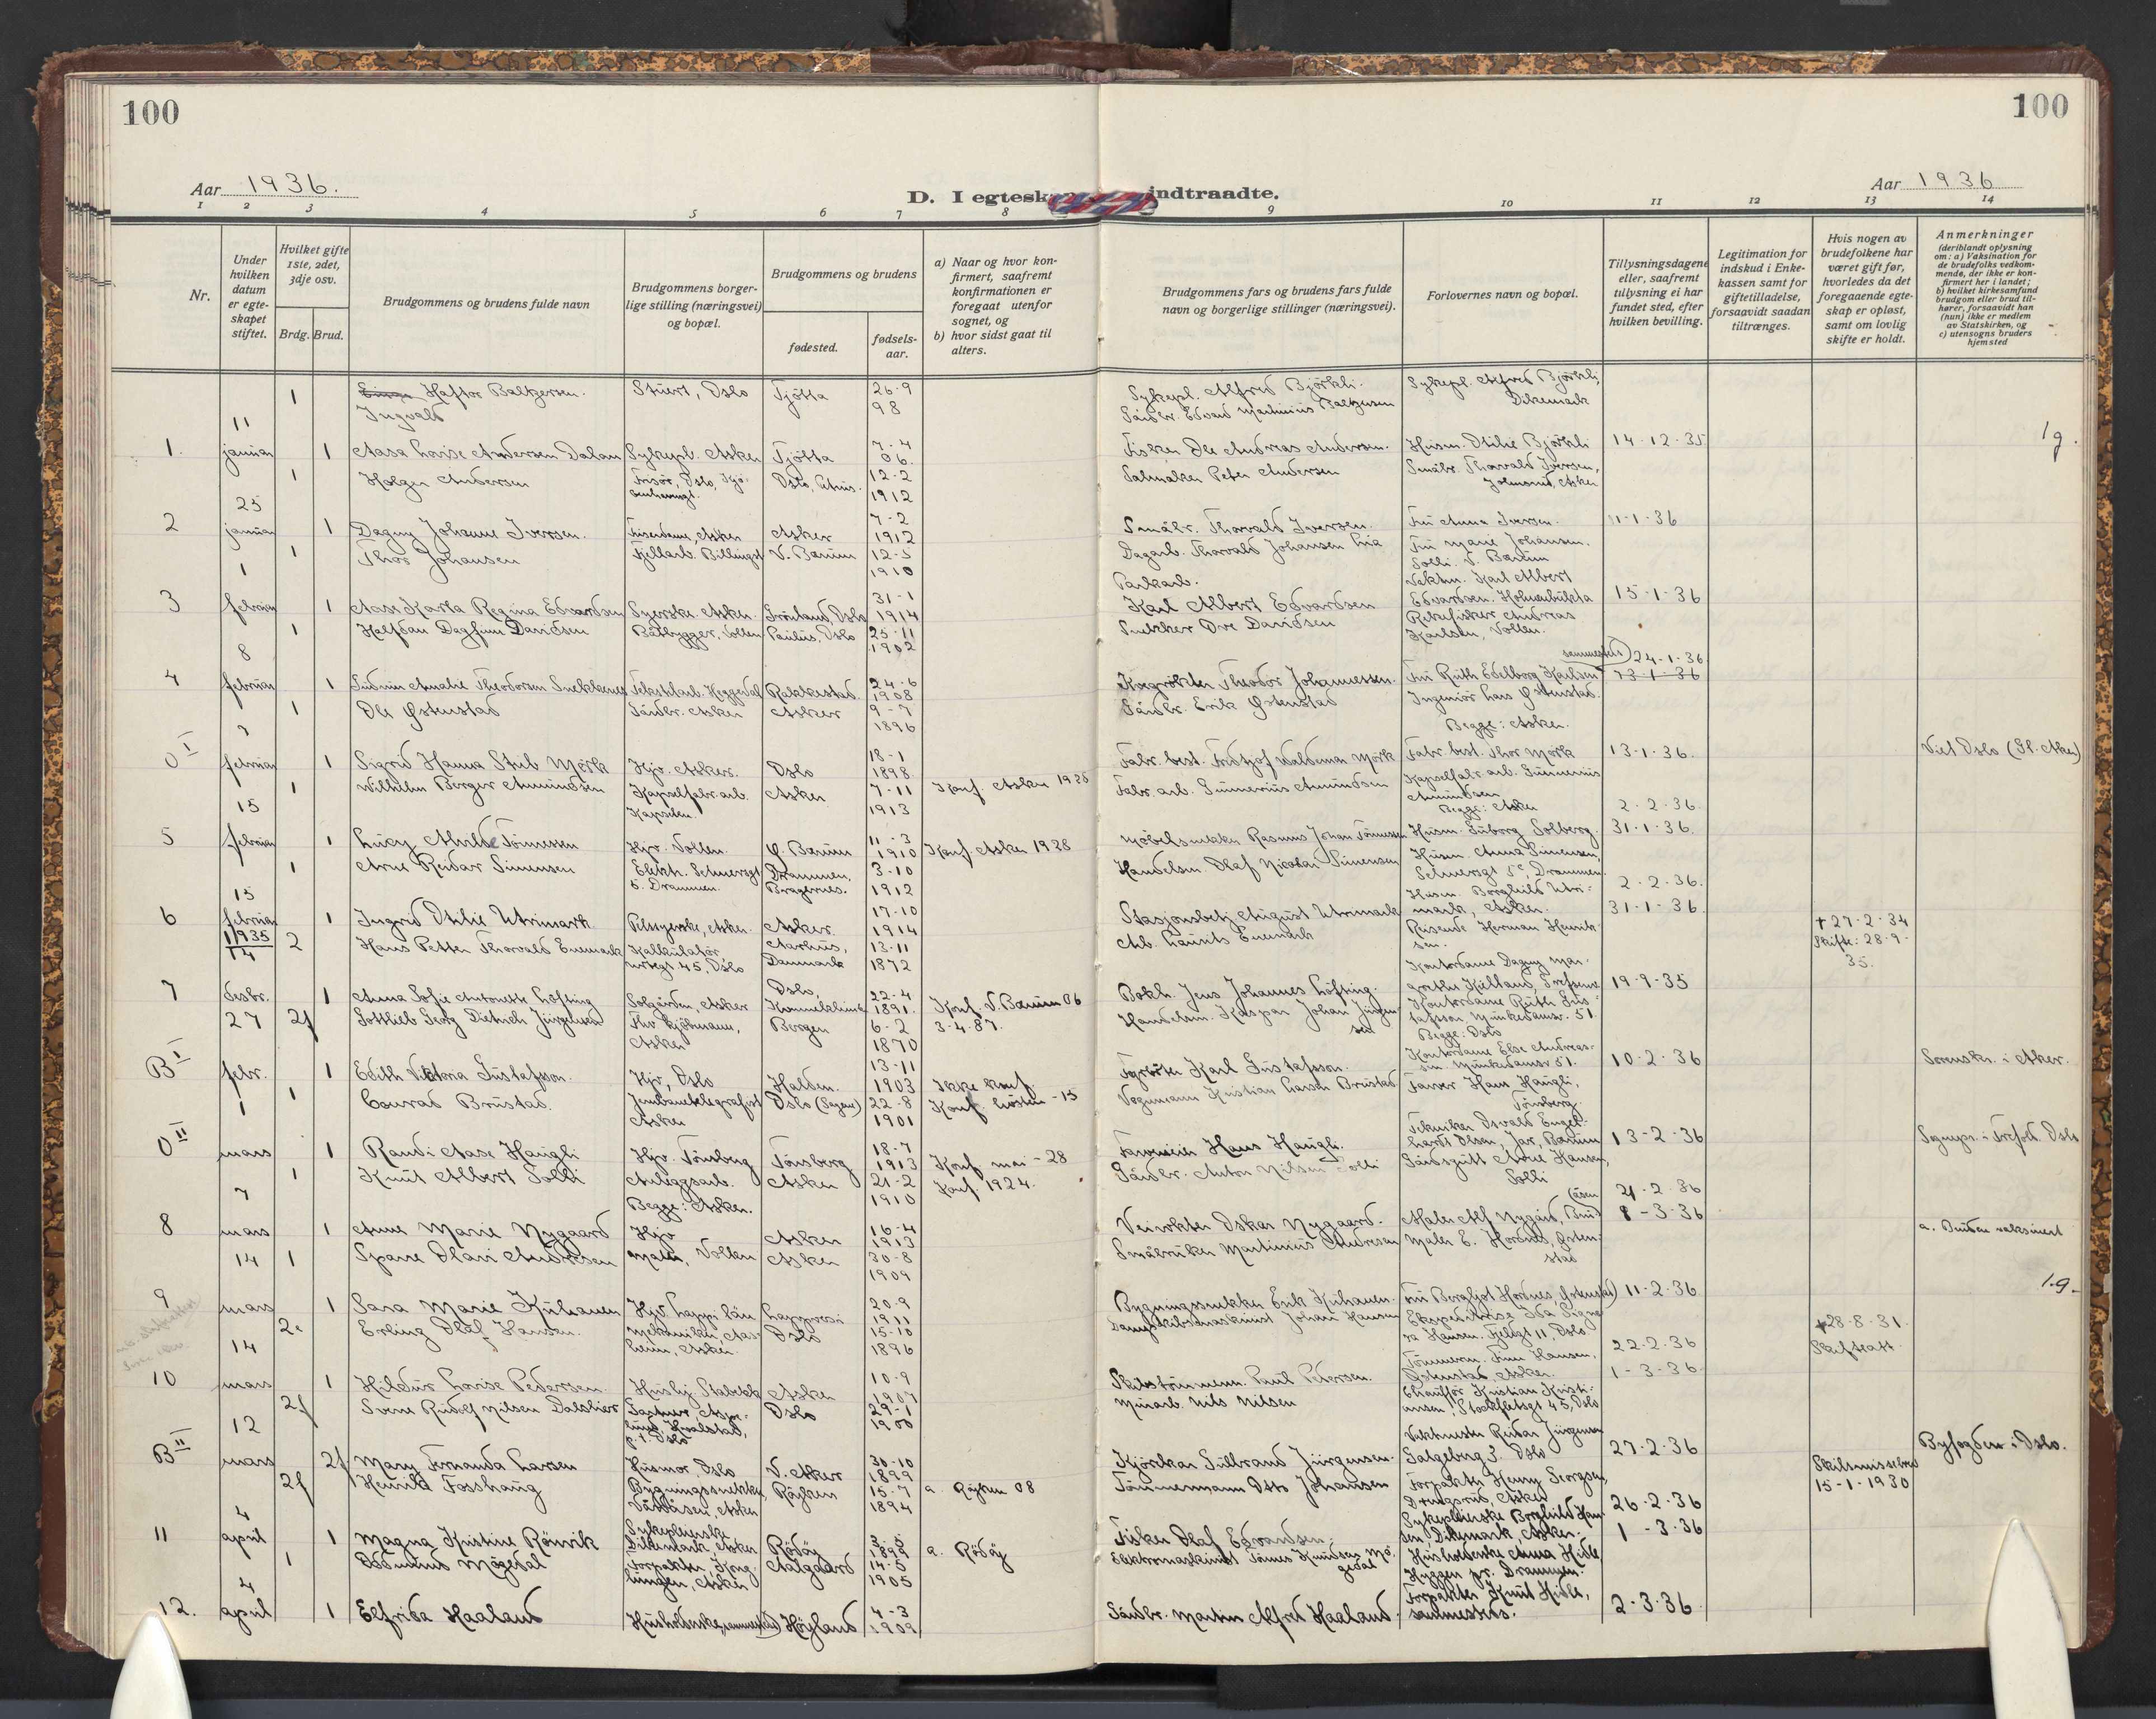 100
100
Aar 1936.
D. I egtesk indtraadte.
Aar 1936
1 2 3 4 5 6 7 8 9 10 11 12 13 14
Nr.
Under hvilken datum er egteskapet stiftet.
Hvilket gifte 1ste, 2det, 3dje osv.
Brdg. Brud.
Brudgommens og brudens fulde navn
Brudgommens borgerlige stilling (næringsvei) og bopæl.
Brudgommens og brudens
fødested.
fødselsaar.
a) Naar og hvor konfirmert, saafremt konfirmationen er foregaat utenfor sognet, og
b) hvor sidst gaat til alters.
Brudgommens fars og brudens fars fulde navn og borgerlige stillinger (næringsvei).
Forlovernes navn og bopæl.
Tillysningsdagene eller, saafremt tillysning ei har fundet sted, efter hvilken bevilling.
Legitimation for indskud i Enkekassen samt for giftetilladelse, forsaavidt saadan tiltrænges.
Hvis nogen av brudefolkene har været gift før, hvorledes da det foregaaende egteskap er opløst, samt om lovlig skifte er holdt.
Anmerkninger
(deriblandt oplysning om: a) Vaksination for de brudefolks vedkommende, der ikke er konfirmert her i landet; b) hvilket kirkesamfund brudgom eller brud tilhører, forsaavidt han (hun) ikke er medlem av Statskirken, og c) utensogns bruders hjemsted
1 Haftor Baltzersen. Stuert, Oslo Tjøtta 26-9 98 Sykepl. Alfred Bjørkli. Sykepl. Alfred Bjørkli, Dikemark
Ingvald Gårdbr. Edvard Martinius Baltzersen
1. 11 januar 1 Aasa Lovise Andersen Dalan Sykepl. Asker Tjøtta 7-4 06. Fisker Ole Andreas Andersen. Husm. Otilie Bjørkli 14-12-35 1g.
1 Holger Andersen Frisør, Oslo, Oslo, 12-2 1912 Salmaker Peter Andersen Småbr. Thorvald Iversen, Asker
2 25 januar 1 Dagny Johanne Iversen. Friserdame, Asker Asker 7-2 1912 Småbr. Thorvald Iversen. Fru Anna Iversen. 11-1-36
1 Thor Johansen Fjellarb. Billingst. V. Bærum 12-5 1910 Dagarb. Thorvald Johansen Lia Fru Marie Johansen, Solli. V. Bærum
3 1 februar 1 Aase Karla Regina Edvardsen Syerske. Asker. Grønland, Oslo 31-1 1914 Parkarb. Karl Albert Edvardsen Vektm. Karl Albert Edvardsen. Holmenbukta 15-1-36
1 Halfdan Dagfinn Davidsen Båtbygger, Vollen Paulus, Oslo 25-11 1902 Snekker Ove Davidsen Rekefisker Andreas Karlsen, Vollen.
4 8 februar 1 Gudrun Amalie Theodorsen Snekkenes Tekstilarb. Heggedal Rakkestad 24-6 1908 Theodor Johannessen. Fru Ruth Edelborg Karlsen sammesteds 24-1-36. 23-1-36
1 Ole Østenstad Gårdbr. Asker Asker 9-7 1896 Gårdbr. Erik Østenstad Ingeniør Lars Østenstad. Begge: Asker.
O I 7 februar 1 Sigrid Hanna Stub Mørk Hjv. Asker. Oslo 18-1 1898 Fabr. best. Fridtjof Waldemar Mørk Fabr. best. Thor Mørk 13-1-36. Viet Oslo (Gl. Aker)
1 Wilhelm Berger Amundsen Kapselfabr. arb. Asker 7-11 1913 Konf. Asker 1928 Fabr. arb. Gunnerius Amundsen Kapselfabr. arb. Gunnerius Amundsen Begge: Asker 2-2-36.
5 15 februar 1 Lucy Tønnessen Hjv. Vollen. Ø. Bærum 11-3 1910 Konf. Asker 1928 Møbelsnekker Rasmus Johan Tønnessen Husm. Guborg Solberg. 31-1-36.
1 Arne Reidar Simensen Elektr. Schwersgt 5. Drammen. Drammen, Bragernes. 3-10 1912 Handelsm. Olaf Nicolai Simensen Husm. Anna Simensen, Schwersgt 5c, Drammen. 2-2-36.
6 15 februar 1 Ingrid Otilie Utrimark. Pelssyerske, Asker. Asker. 17-10 1914 Stasjonsbetj. August Utrimark Husm. Borghild Utrimark, Asker. 31-1-36
2 Hans Petter Thorvald Enemark Kalkulatør, 45, Oslo Aarhus, Danmark 13-11 1872 Arb. Laurits Enemark Reisende Herman Henriksen. †27-2-34 Skifte: 28-9-35.
7 1935 desbr. 1 Anna Sofie Antonette Løfting Solgården, Asker Oslo, 22-4 1891. Konf. V. Bærum 06 Bokh. Jens Johannes Løfting. Kontordame Dagny Margrethe Kielland, 19-9-35
27 2f Gottlieb Georg Dietrich Jürgensen Fhv kjøbmann, Asker Bergen 6-2 1870 3-4-87. Handelsm. Kaspar Johan Jürgensen Kontordame Ruth Gustafsson, Munkedamsv. 51. Begge: Oslo
B I febr. 1 Edith Viktoria Gustafsson. Hjv, Oslo Halden. 13-11 1903 Ikke konf. Karl Gustafsson. Kontordame Else Andreassen Munkedamsv 51. 10-2-36 Sorenskr. i Aker.
1 1 Conrad Brustad. Jernbanetelegrafist Asker Oslo (Sagene) 22-8 1901 Konf. høsten -15 Vognmann Kristian Larsen Brustad Farver Hans Haugli, Tønsberg.
O II mars 1 Randi Aase Haugli Hjv. Tønsberg Tønsberg 18-7 1913 Konf mai -28 Hans Haugli. Tekniker Osvald Engelhardt Olsen, Jar, Bærum 13-2-36 Sognepr. i Trefold. Oslo
7 1 Knut Albert Solli Anleggsarb. Begge: Asker. Asker 21-2 1910 Konf. 1924. Gårdbr. Anton Nilsen Solli Gårdsgutt Arne Hansen, Solli 21-2-36
8 mars 1 Anne Marie Nygaard Hjv Asker 16-4 1913 Veivokter Oskar Nygaard. Maler Alf Nygård, 1-3-36 a. Bruden vaksinert
14 1 Sparre Olari Andresen Maler, Vollen Asker 30-8 1909 Småbruker Martinius Andresen Maler E. Hordnes, Østenstad
9 mars 1 Sara Marie Kuhauen Hjv. 20-9 1911 Bygningssnekker Erik Kuhauen. Fru Bergljot Hordnes, Østenstad 11-2-36 1.g.
14 2e Erling Olaf Hansen. Mekaniker, Asker. Oslo 15-10 1896 Dampskibsmaskinist Johan Hansen Hansen. 11, Oslo 22-2-36 †28-8-31. Skifteatt.
10 mars 1 Hildur Lovise Pedersen. Husbj. Stabekk Asker 10-9 1907 Skibstømmerm. Paul Petersen. Tømmerm. Finn Hansen, Østenstad, Asker. 1-3-36
12 2f Sverre Rudolf Nilsen Dalshier Gartner, Hvalstad, p.t. Oslo Oslo 29-1 1900 Murarb. Nils Nilsen Chauffør Kristian Kristiansen, Stockfletsgt 45, Oslo
B II mars 2f Mary Fernanda Larsen Husmor, Oslo V. Aker 30-10 1899 Kjørekar Gulbrand Jürgensen. Vektmester Reidar Jürgensen Oslo 27-2-36 Byfogden i Oslo.
4 2f Henrik Fosshaug Bygningssnekker, Asker Røyken 15-7 1894 a. Røyken 08 Tømmermann Otto Johansen Forpakter Henry Georgsen, Asker 26-2-36 15-1-1930
11 april 1 Magna Kristine Rönvik Sykepleierske Dikemark, Asker Rødøy 3-5 1899 a. Rødøy Fisker Olaf Edvardsen. Sykepleierske Borghild Hansen, Dikemark, Asker. 1-3-36
4 1 Oddmund Møgedal Forpakter, Konglungen, Asker Aalgaard 14-5 1905 Elektromaskinist Tønnes Knudsen Møgedal Husholderske Anna Hidle Hyggen pr. Drammen.
12. april 1 Elfrida Haaland Husholderske, sammesteds Høyland 4-3 1909 Gårdbr. Martin Alfred Haaland. Forpakter Knut Hidle, sammesteds. 2-3-36